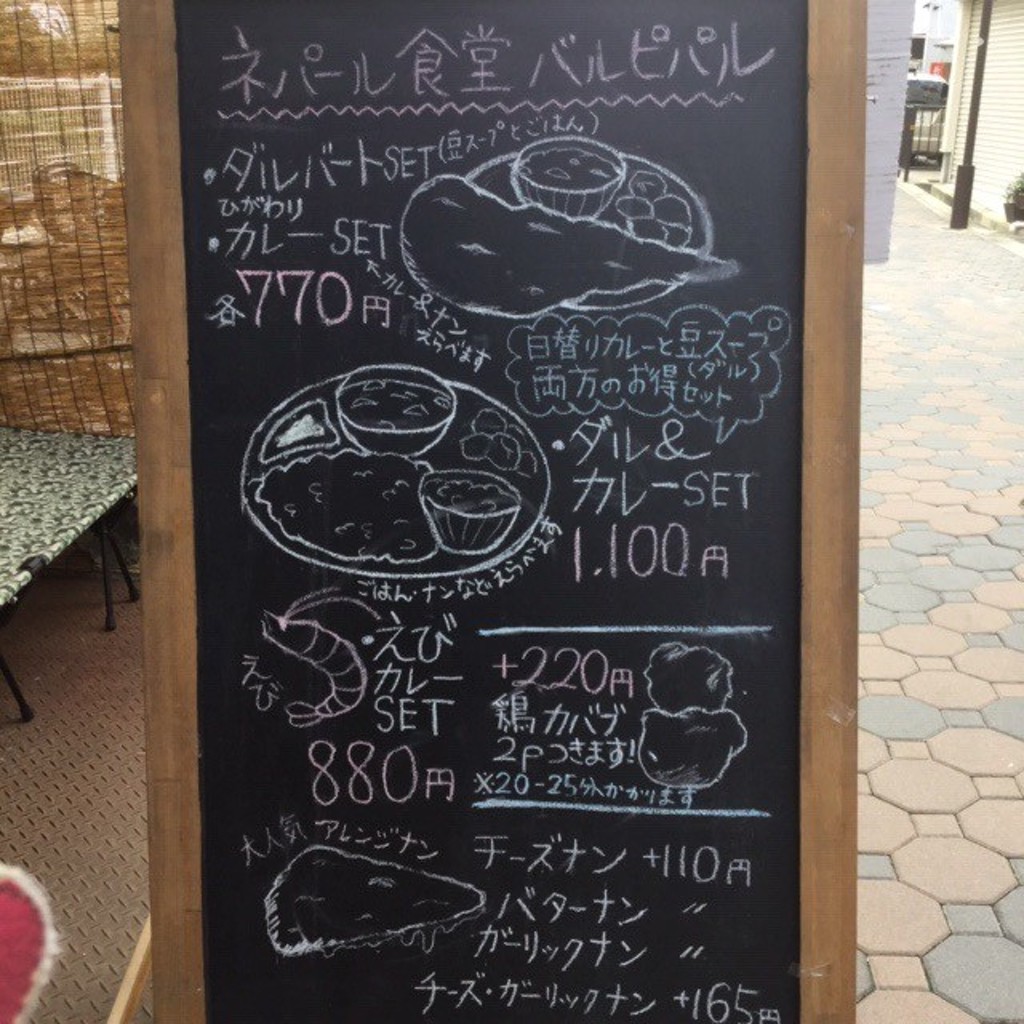 ネパール食堂 バルピパル
・ダルバートSET(豆スープとごはん)
ひがわり
・カレーSET
各770円
↖カレー&ナン
えらべます
日替りカレーと豆スープ
(ダル)
両方のお得セット
・ダル&
カレーSET
1.100円
ごはん・ナンなどえらべます
えび
・えび
カレー
SET
880円
+220円
鶏カバブ
2pつきます!
※20-25分かかります
大人気 アレンジナン
チーズナン +110円
バターナン 〃
ガーリックナン 〃
チーズ・ガーリックナン +165円